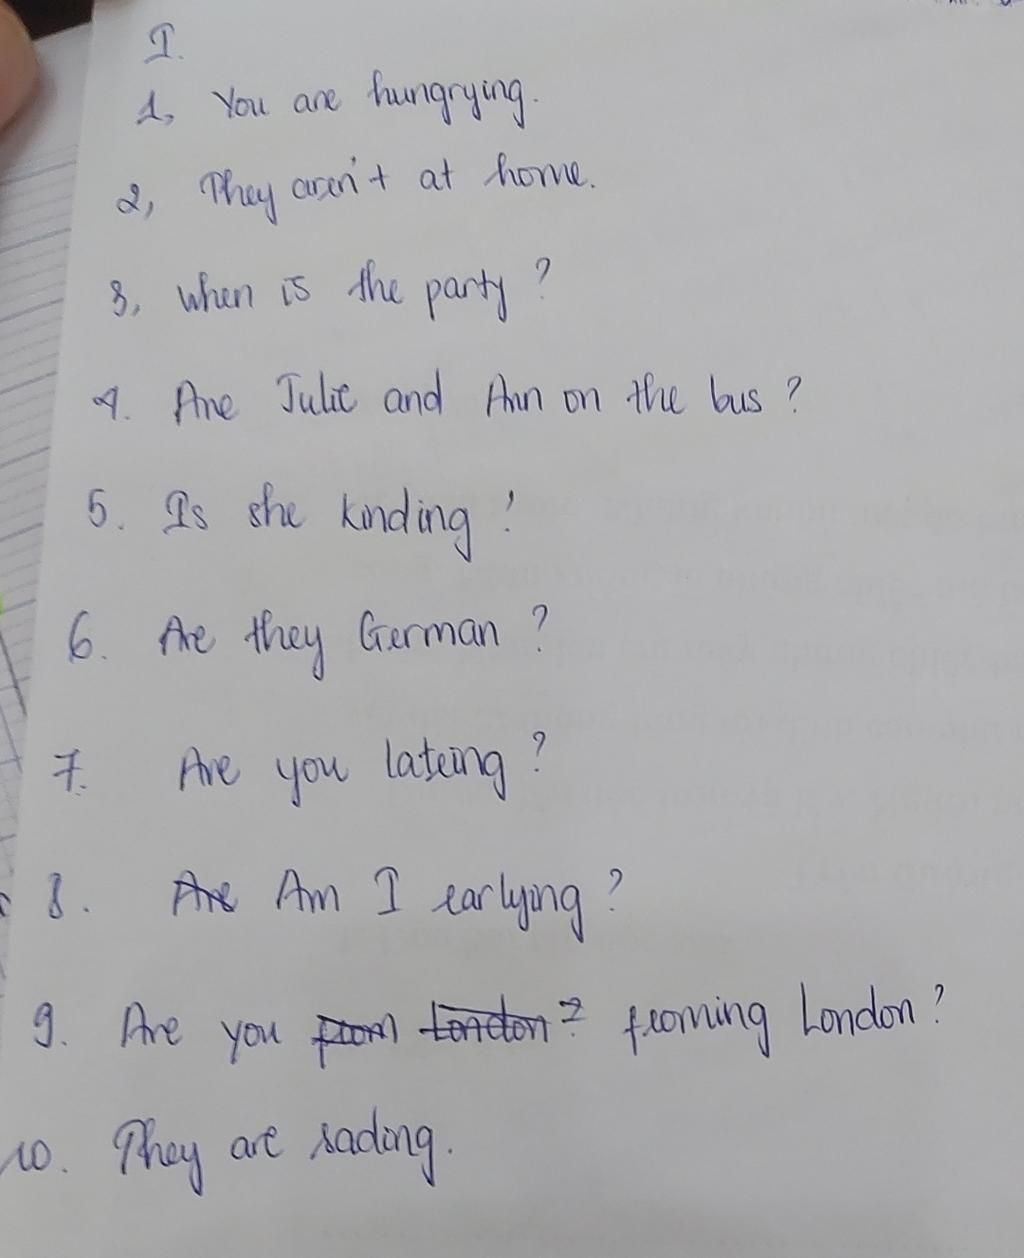 I.
1, You are hungrying.
2, They aren't at home.
3, when is the party?
4. Are Julie and Ann on the bus?
5. Is she kinding!
6. Are they German?
7. Are you lateing?
8. Are Am I earlying?
9. Are you from London? froming London?
10. They are sading.